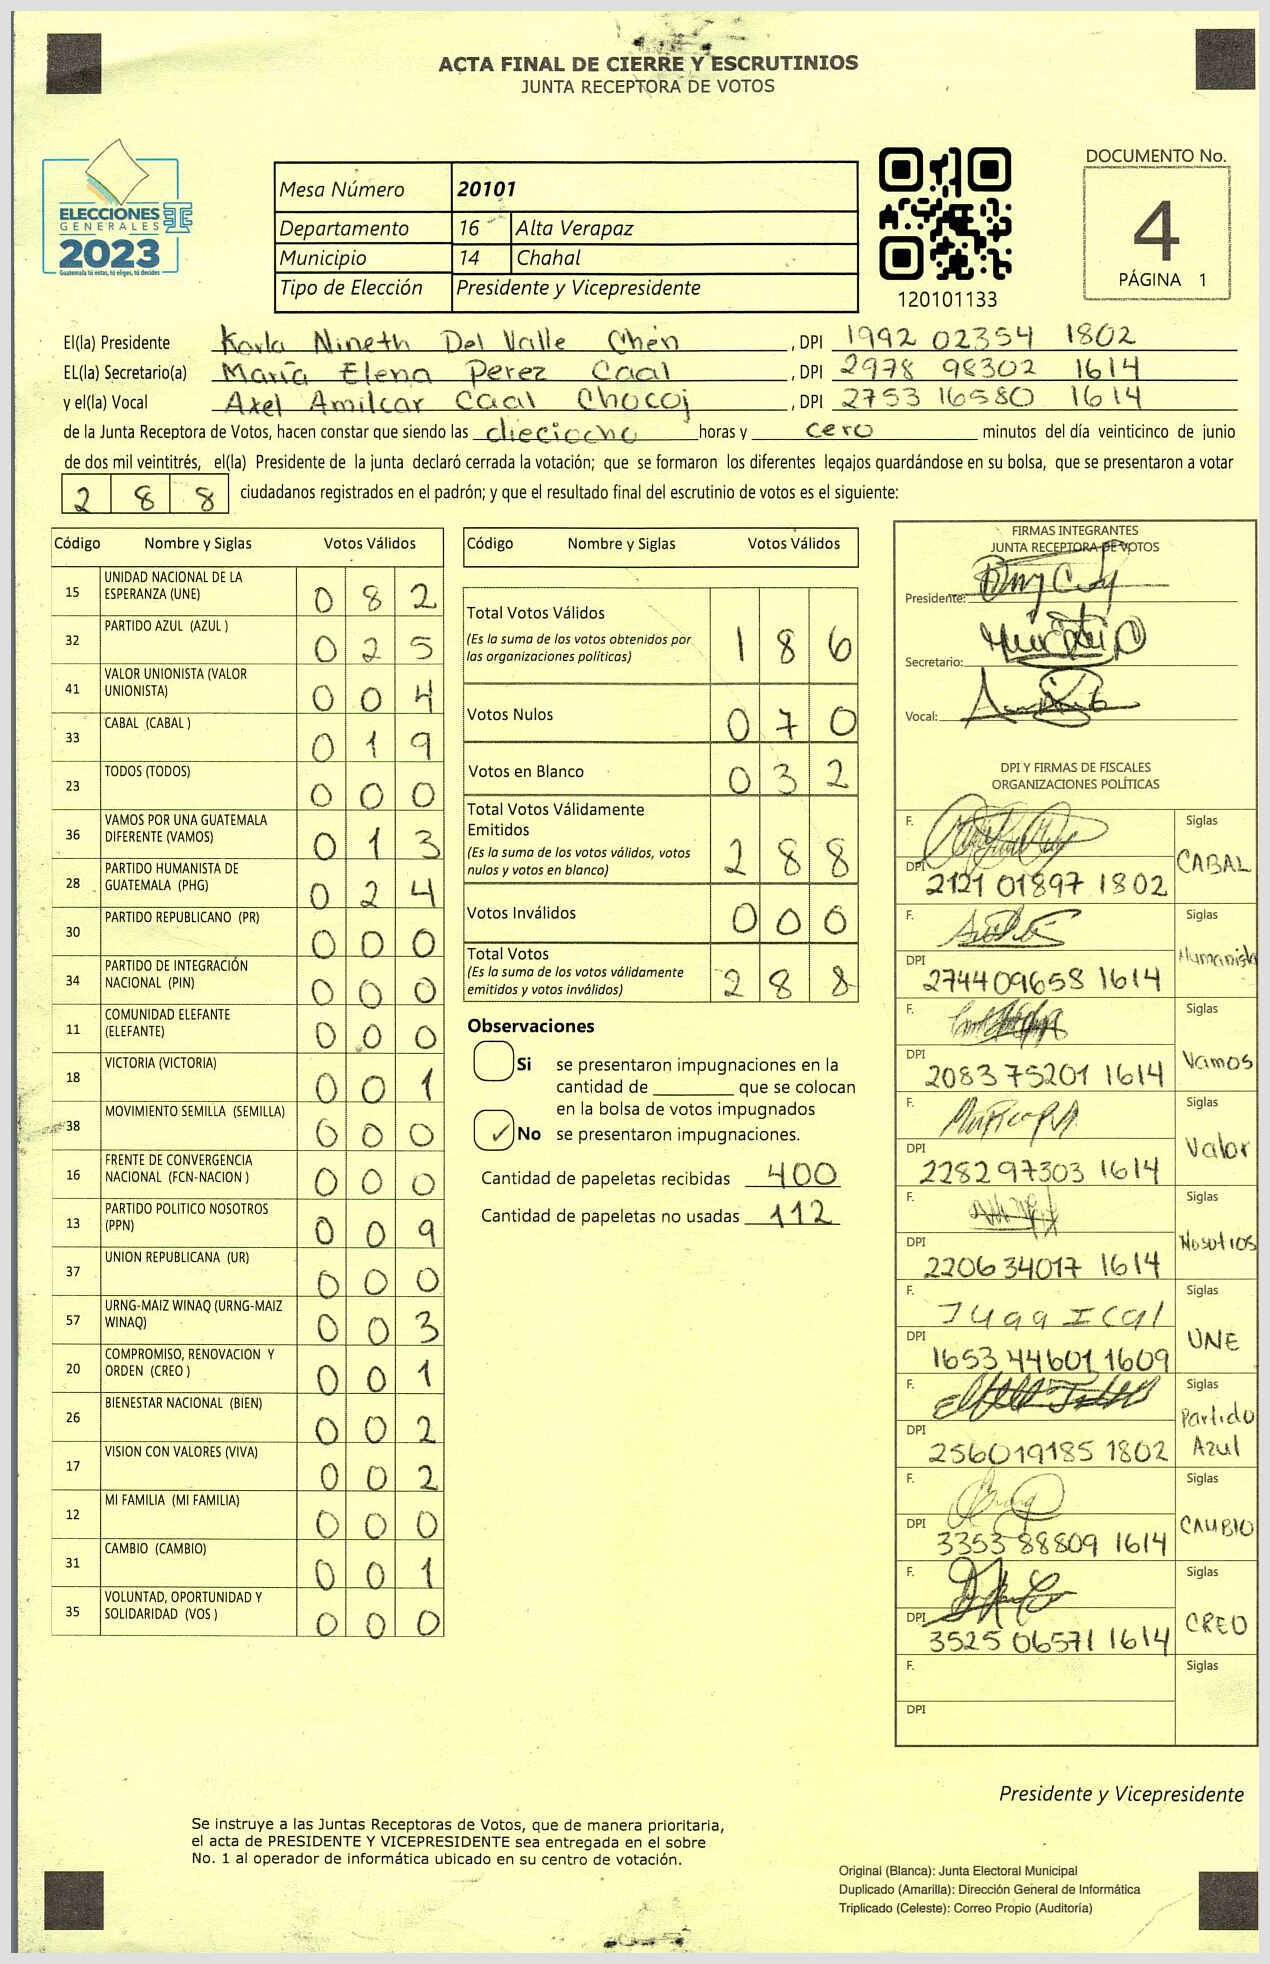 ACTA FINAL DE CIERRE Y ESCRUTINIOS
JUNTA RECEPTORA DE VOTOS
ELECCIONES
GENERALES
2023
Guatemala tú estas, tú eliges, tú decides
Mesa Número 20101
Departamento 16 Alta Verapaz
Municipio 14 Chahal
Tipo de Elección Presidente y Vicepresidente
120101133
DOCUMENTO No.
4
PÁGINA 1
El(la) Presidente Karla Nineth Del Valle Chén , DPI 1992 02354 1802
EL(la) Secretario(a) María Elena Perez Caal , DPI 2978 98302 1614
y el(la) Vocal Axel Amilcar Caal Chocoj , DPI 2753 16580 1614
de la Junta Receptora de Votos, hacen constar que siendo las dieciocho horas y cero minutos del día veinticinco de junio
de dos mil veintitrés, el(la) Presidente de la junta declaró cerrada la votación; que se formaron los diferentes legajos guardándose en su bolsa, que se presentaron a votar
2 8 8 ciudadanos registrados en el padrón; y que el resultado final del escrutinio de votos es el siguiente:
Código Nombre y Siglas Votos Válidos
15 UNIDAD NACIONAL DE LA ESPERANZA (UNE) 0 8 2
32 PARTIDO AZUL (AZUL ) 0 2 5
41 VALOR UNIONISTA (VALOR UNIONISTA) 0 0 4
33 CABAL (CABAL ) 0 1 9
23 TODOS (TODOS) 0 0 0
36 VAMOS POR UNA GUATEMALA DIFERENTE (VAMOS) 0 1 3
28 PARTIDO HUMANISTA DE GUATEMALA (PHG) 0 2 4
30 PARTIDO REPUBLICANO (PR) 0 0 0
34 PARTIDO DE INTEGRACIÓN NACIONAL (PIN) 0 0 0
11 COMUNIDAD ELEFANTE (ELEFANTE) 0 0 0
18 VICTORIA (VICTORIA) 0 0 1
38 MOVIMIENTO SEMILLA (SEMILLA) 0 0 0
16 FRENTE DE CONVERGENCIA NACIONAL (FCN-NACION ) 0 0 0
13 PARTIDO POLITICO NOSOTROS (PPN) 0 0 9
37 UNION REPUBLICANA (UR) 0 0 0
57 URNG-MAIZ WINAQ (URNG-MAIZ WINAQ) 0 0 3
20 COMPROMISO, RENOVACION Y ORDEN (CREO ) 0 0 1
26 BIENESTAR NACIONAL (BIEN) 0 0 2
17 VISION CON VALORES (VIVA) 0 0 2
12 MI FAMILIA (MI FAMILIA) 0 0 0
31 CAMBIO (CAMBIO) 0 0 1
35 VOLUNTAD, OPORTUNIDAD Y SOLIDARIDAD (VOS ) 0 0 0
Código Nombre y Siglas Votos Válidos
Total Votos Válidos 1 8 6
(Es la suma de los votos obtenidos por
las organizaciones políticas)
Votos Nulos 0 7 0
Votos en Blanco 0 3 2
Total Votos Válidamente
Emitidos 2 8 8
(Es la suma de los votos válidos, votos
nulos y votos en blanco)
Votos Inválidos 0 0 0
Total Votos 2 8 8
(Es la suma de los votos válidamente
emitidos y votos inválidos)
Observaciones
Si se presentaron impugnaciones en la
cantidad de ________ que se colocan
en la bolsa de votos impugnados
✓ No se presentaron impugnaciones.
Cantidad de papeletas recibidas 400
Cantidad de papeletas no usadas 112
FIRMAS INTEGRANTES
JUNTA RECEPTORA DE VOTOS
Presidente:
Secretario:
Vocal:
DPI Y FIRMAS DE FISCALES
ORGANIZACIONES POLÍTICAS
F. Siglas
DPI 2121 01897 1802 CABAL
F. Siglas
DPI 2744 09658 1614 Humanista
F. Siglas
DPI 2083 75201 1614 Vamos
F. Siglas
DPI 2282 97303 1614 Valor
F. Siglas
DPI 2206 34017 1614 Nosotros
F. Siglas
DPI 1653 44601 1609 UNE
F. Siglas
DPI 2560 19185 1802 Partido Azul
F. Siglas
DPI 3353 88809 1614 CAMBIO
F. Siglas
DPI 3525 06571 1614 CREO
F. Siglas
DPI
Presidente y Vicepresidente
Se instruye a las Juntas Receptoras de Votos, que de manera prioritaria,
el acta de PRESIDENTE Y VICEPRESIDENTE sea entregada en el sobre
No. 1 al operador de informática ubicado en su centro de votación.
Original (Blanca): Junta Electoral Municipal
Duplicado (Amarilla): Dirección General de Informática
Triplicado (Celeste): Correo Propio (Auditoría)